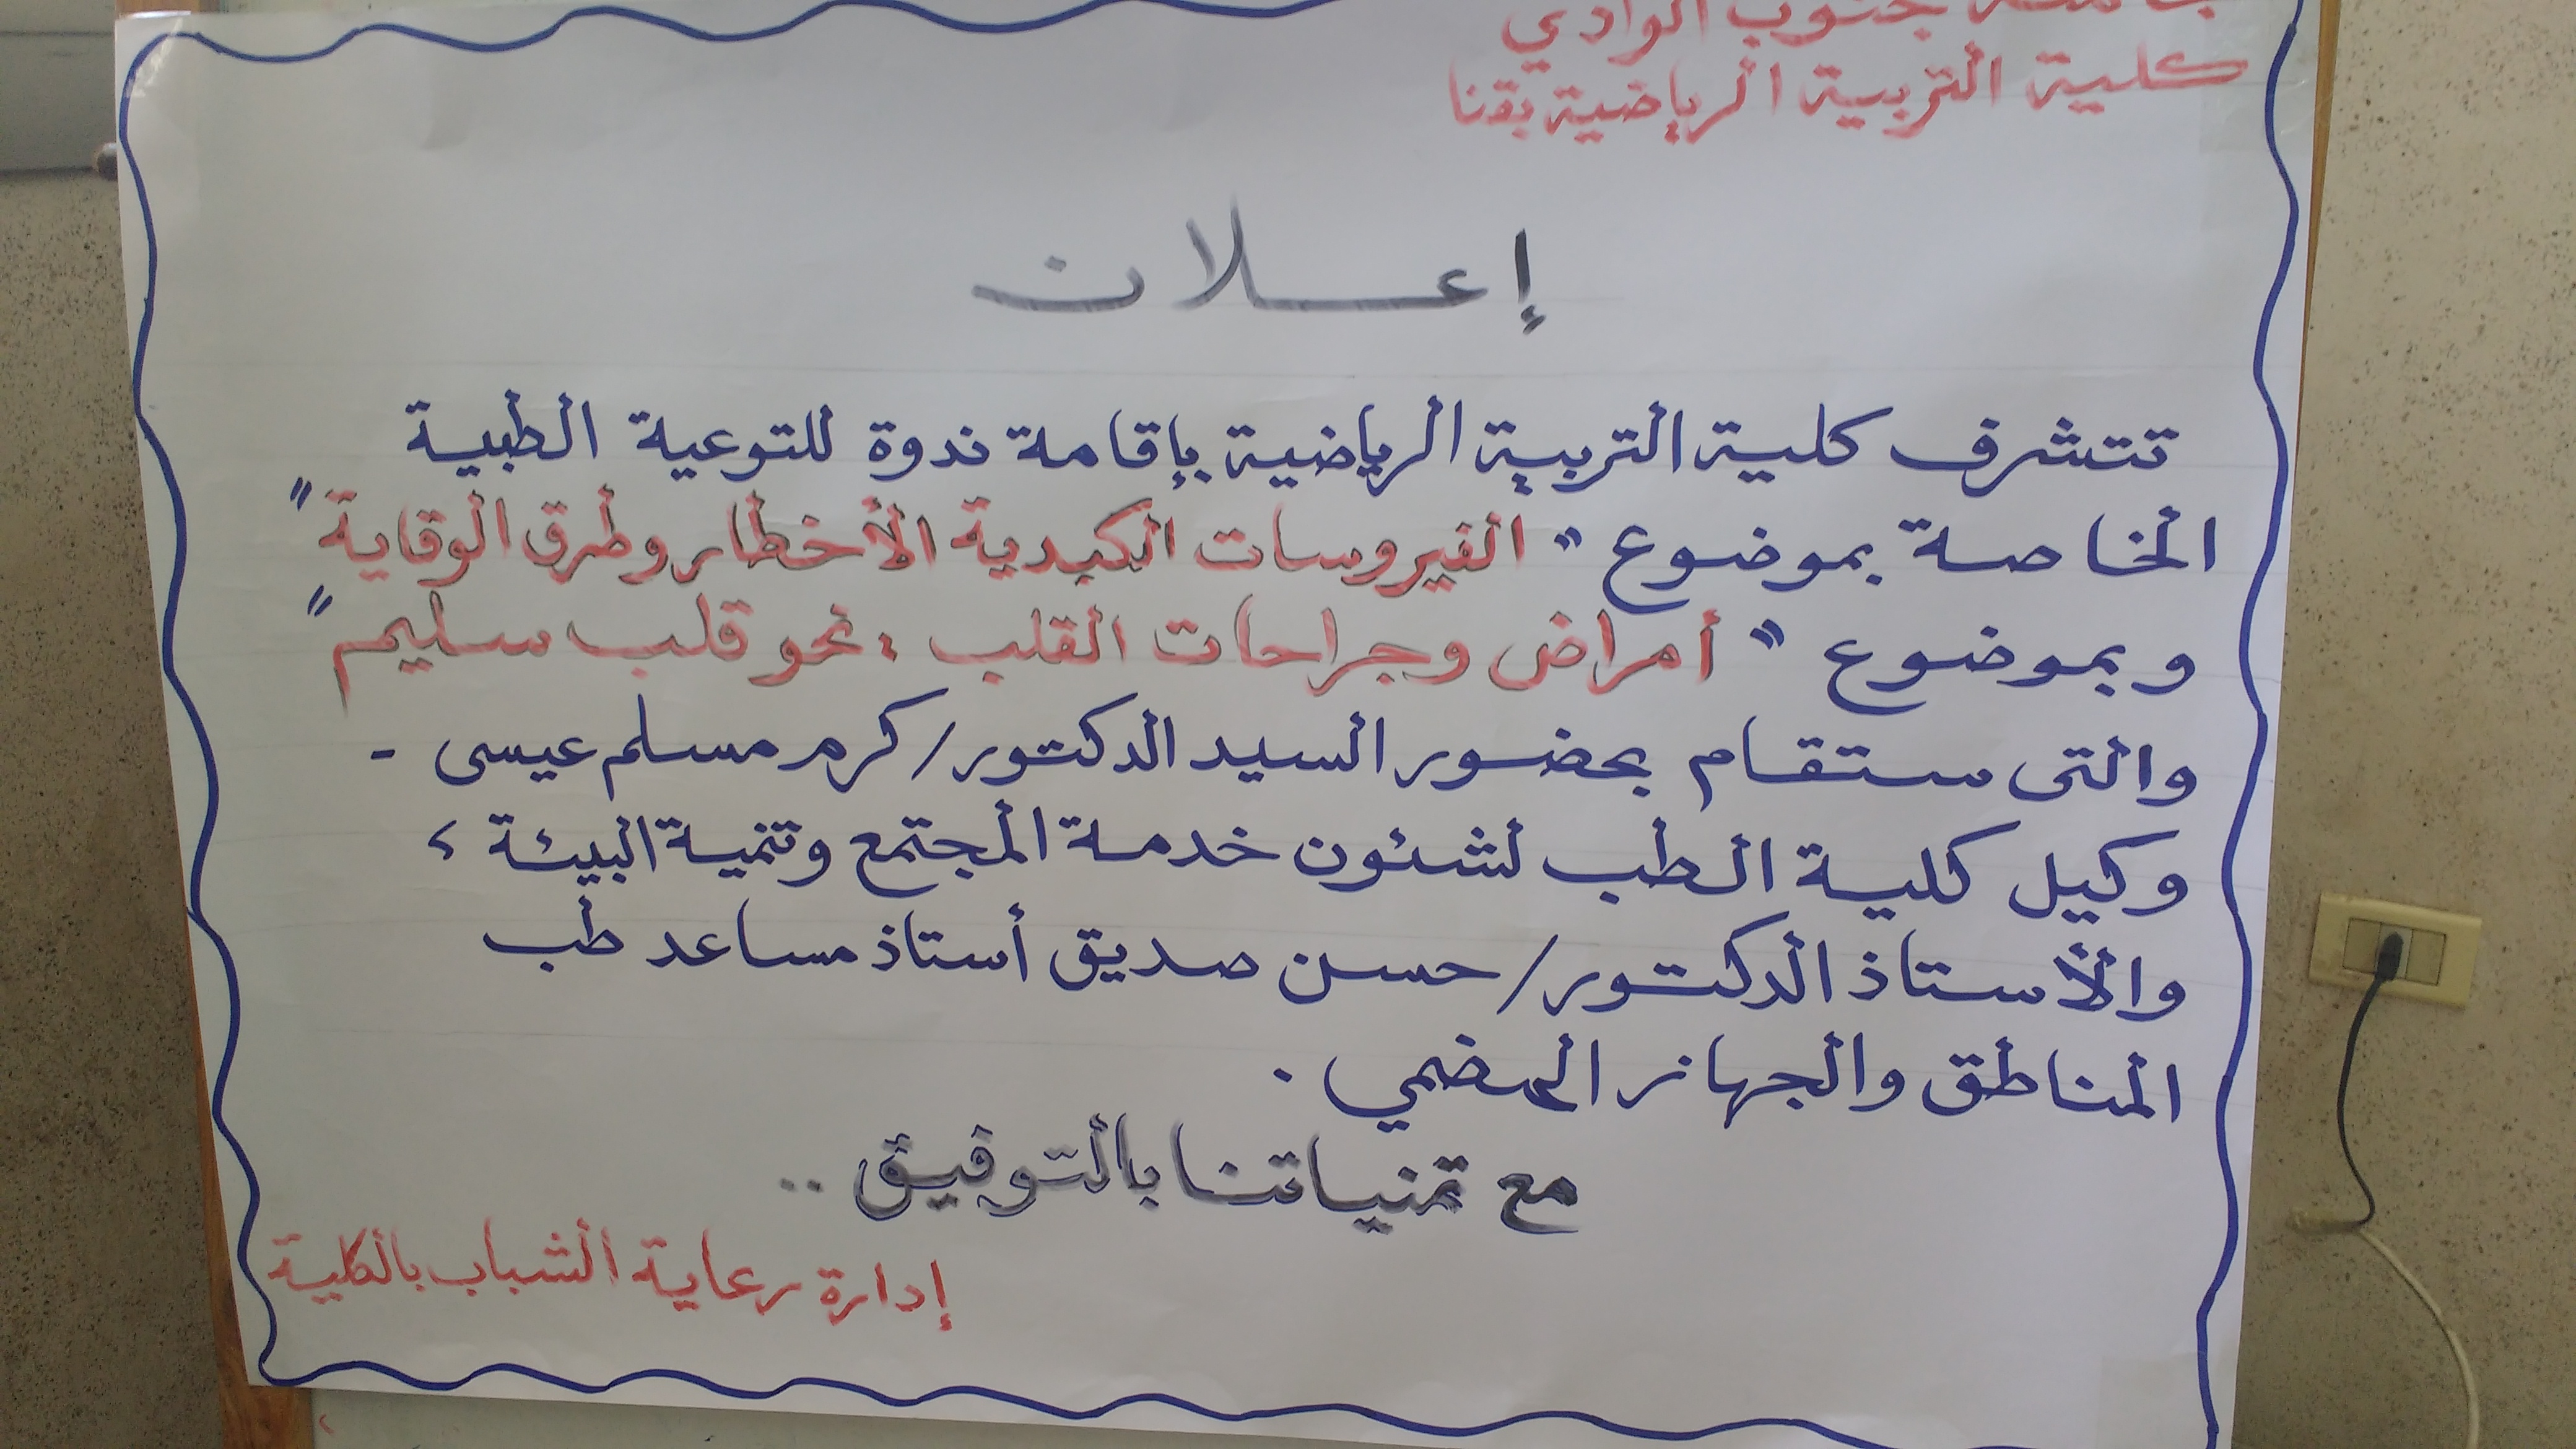 جامعة جنوب الوادي
كلية التربية الرياضية بقنا
إعلان
تتشرف كلية التربية الرياضية بإقامة ندوة للتوعية الطبية
الخاصة بموضوع " الفيروسات الكبدية الأخطار وطرق الوقاية "
وبموضوع " أمراض وجراحات القلب : نحو قلب سليم "
والتى ستقام بحضور السيد الدكتور/ كرم مسلم عيسى -
وكيل كلية الطب لشئون خدمة المجتمع وتنمية البيئة ،
والأستاذ الدكتور/ حسن صديق أستاذ مساعد طب
المناطق والجهاز الهضمي .
مع تمنياتنا بالتوفيق ..
إدارة رعاية الشباب بالكلية